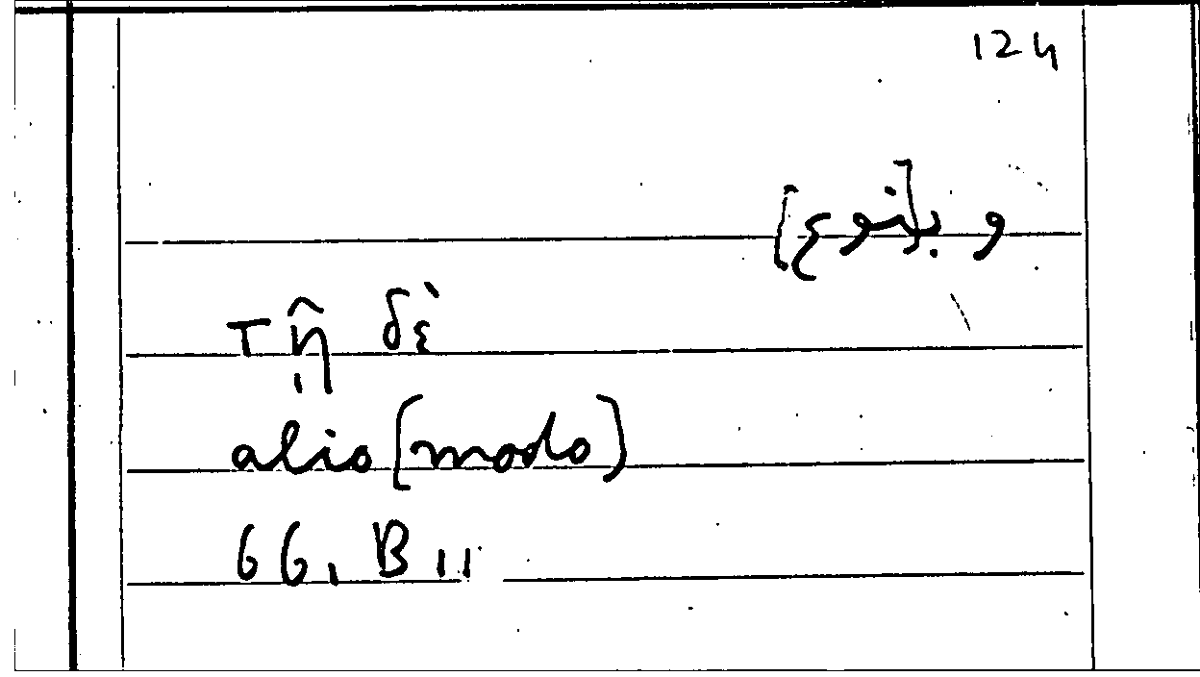 124
و بـ[نوع]
τῇ δὲ
alio [modo]
66, B 11